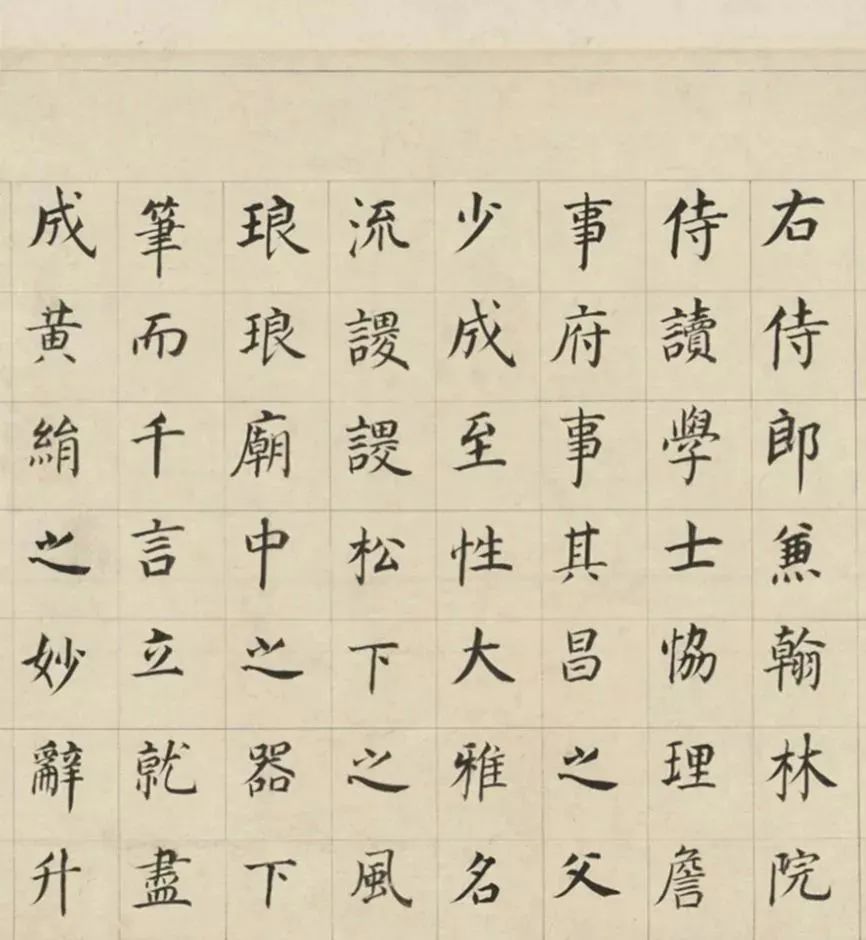 右侍郎兼翰林院
侍讀學士協理詹
事府事其昌之父
少成至性大雅名
流謖謖松下之風
琅琅廟中之器下
筆而千言立就盡
成黃絹之妙辭升